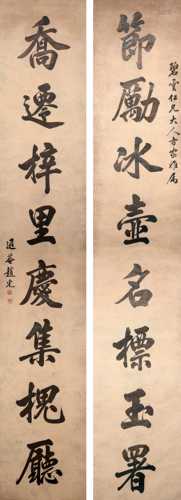 節勵冰壺名標玉署
碧雲仁兄大人方家雅屬
喬遷梓里慶集槐廳
趙光